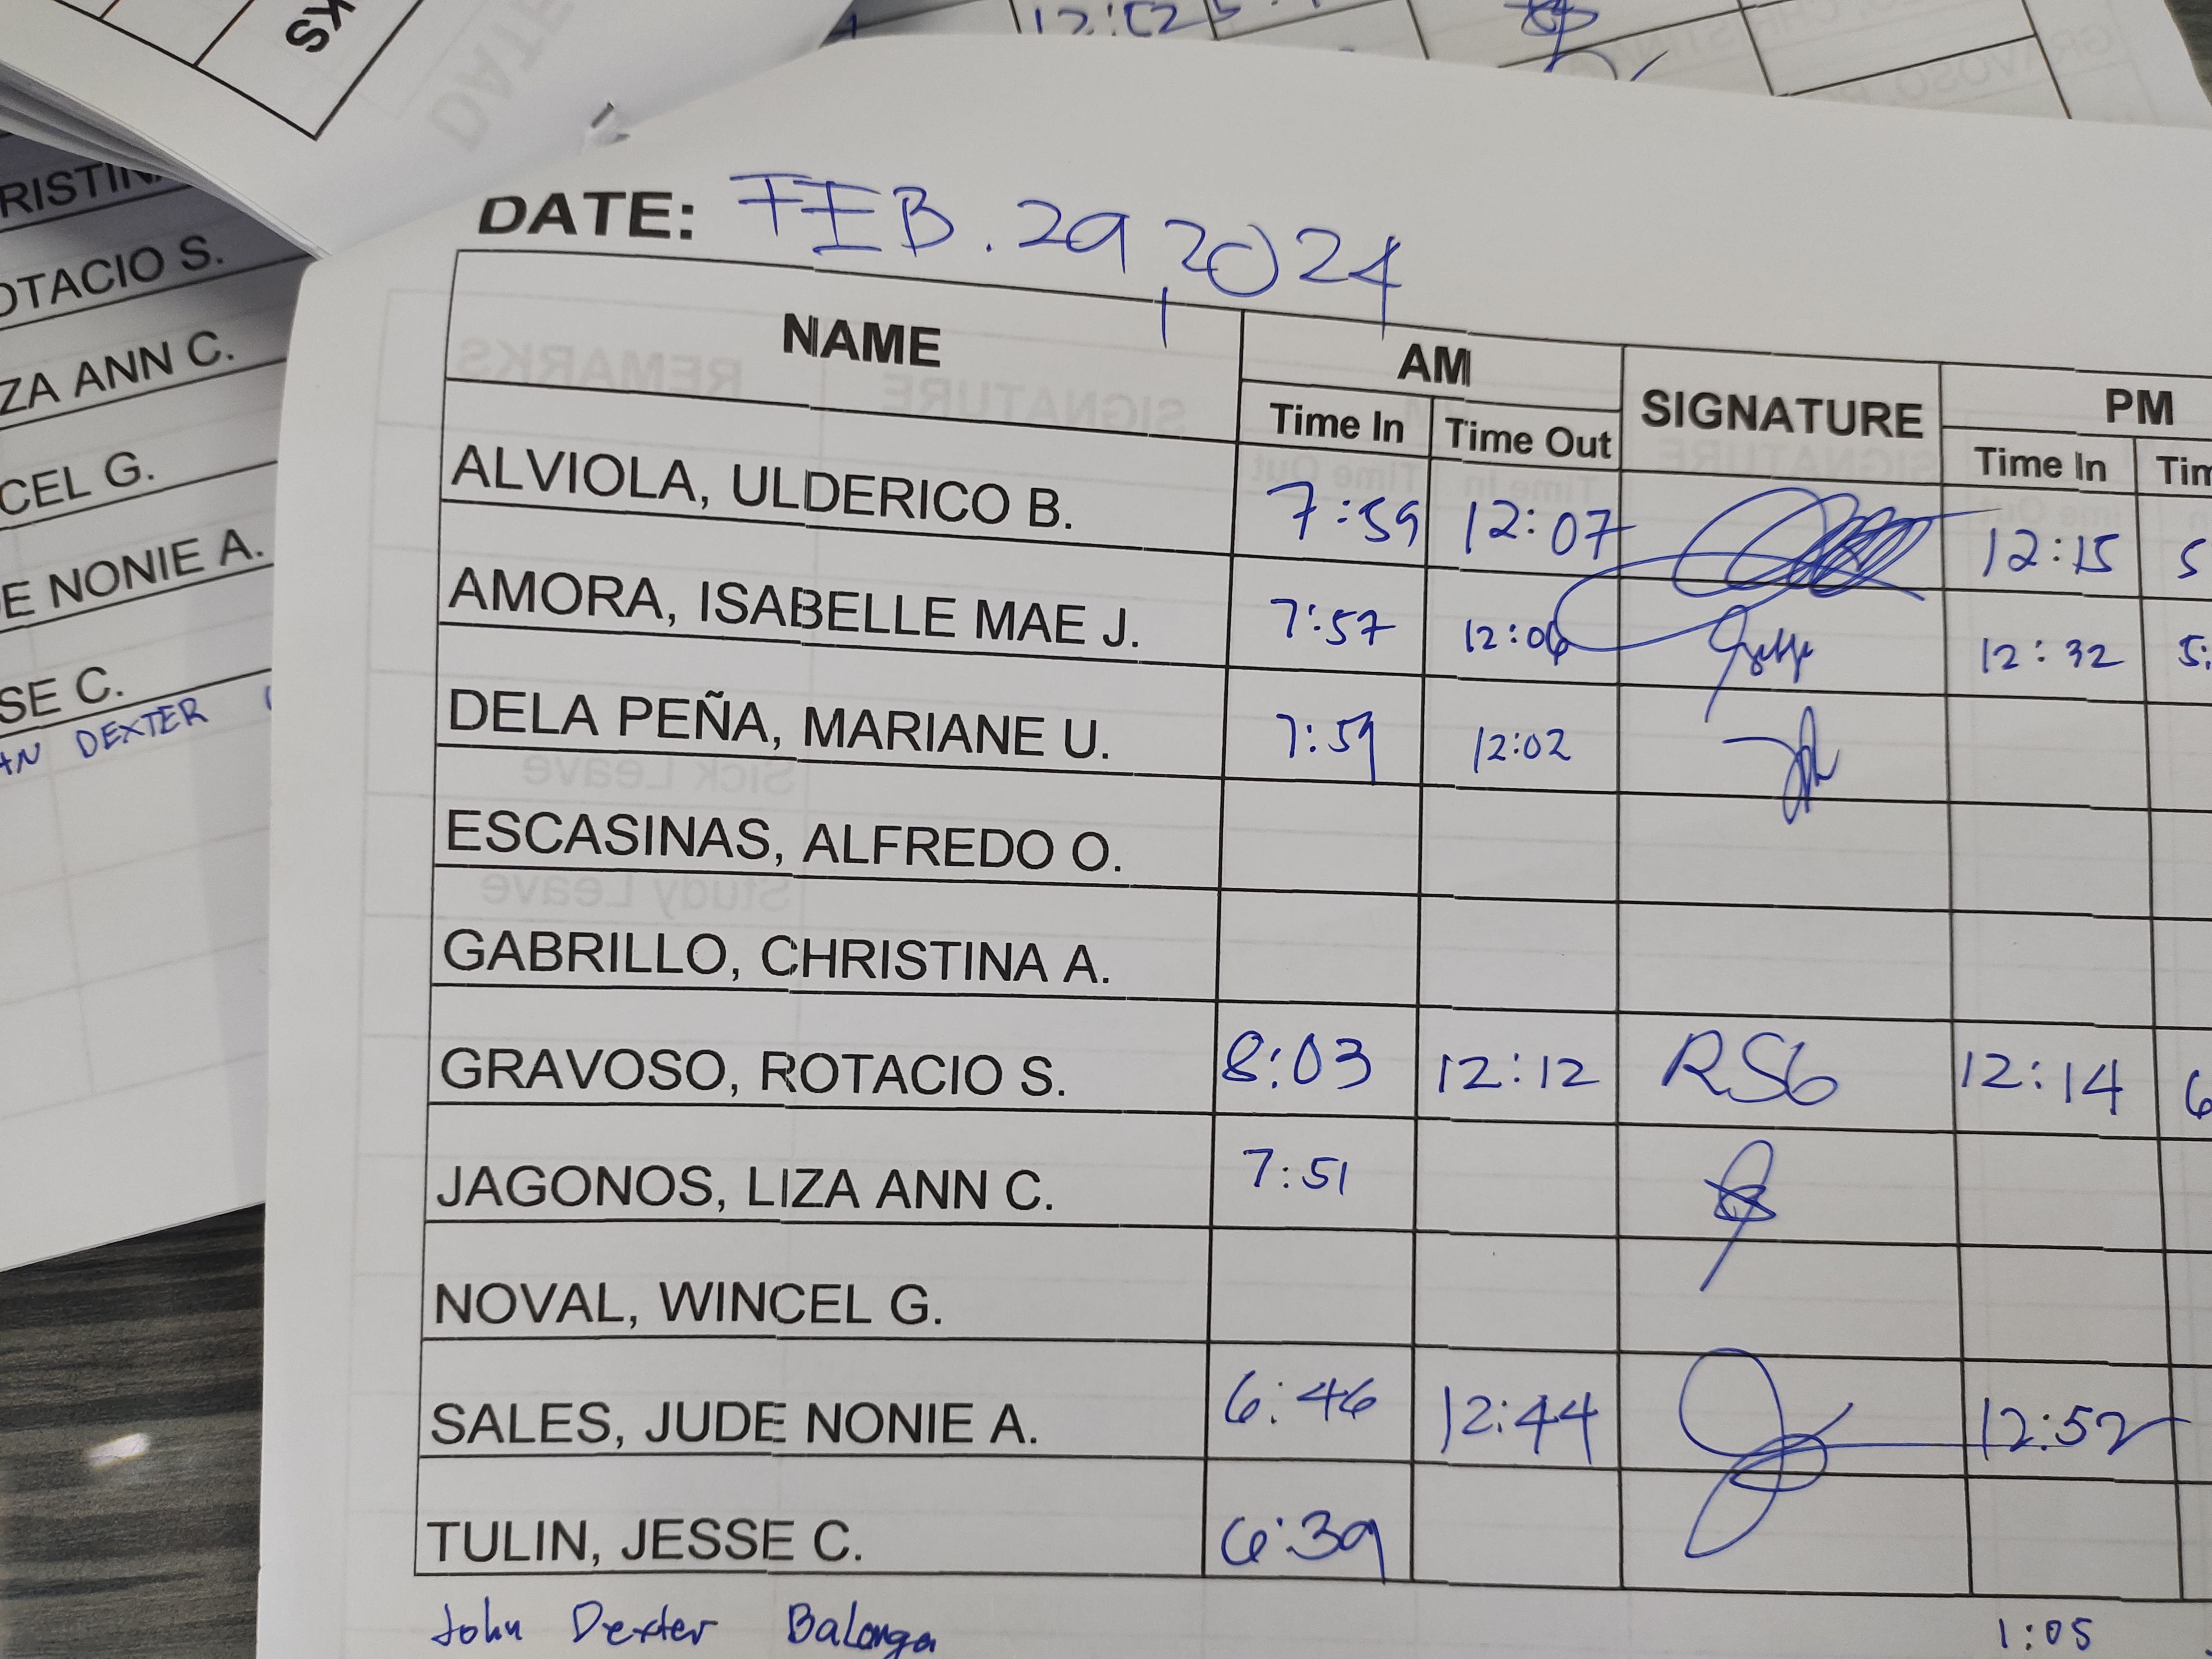 KS
12:52
RISTINA
OTACIO S.
ZA ANN C.
CEL G.
E NONIE A.
SE C.
AN DEXTER
DATE: FEB. 29, 2024
NAME AM SIGNATURE PM
Time In Time Out Time In Tim
ALVIOLA, ULDERICO B. 7:59 12:07 12:15 5
AMORA, ISABELLE MAE J. 7:57 12:06 12:32 5:
DELA PEÑA, MARIANE U. 7:59 12:02
ESCASINAS, ALFREDO O.
GABRILLO, CHRISTINA A.
GRAVOSO, ROTACIO S. 8:03 12:12 RSG 12:14 6
JAGONOS, LIZA ANN C. 7:51
NOVAL, WINCEL G.
SALES, JUDE NONIE A. 6:46 12:44 12:52
TULIN, JESSE C. 6:39
John Dexter Balonga 1:05